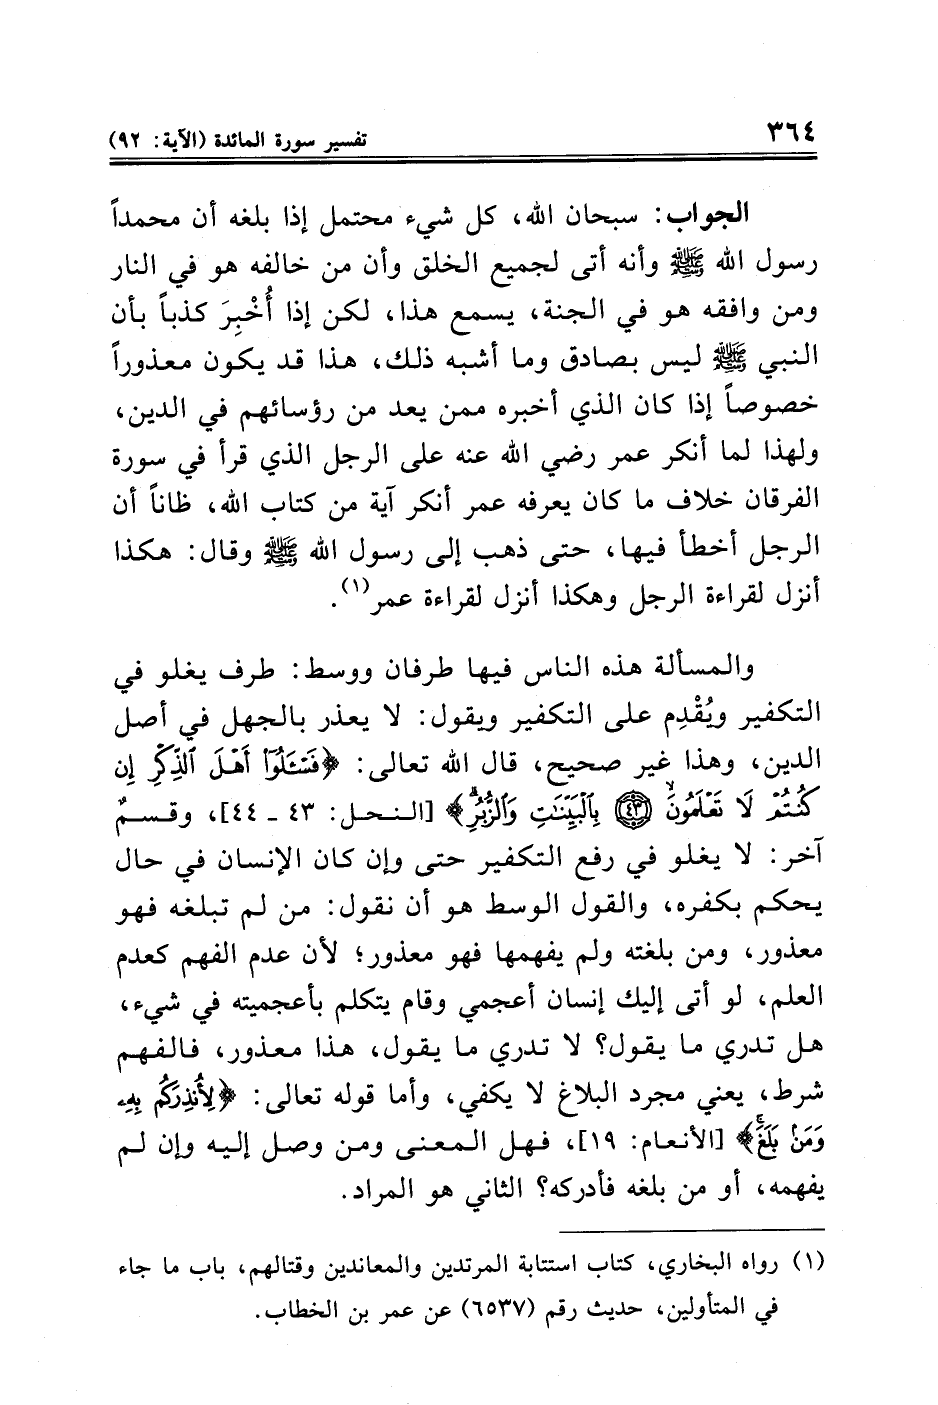 ٣٦٤
تفسير سورة المائدة (الآية: ٩٢)
الجواب: سبحان الله، كل شيء محتمل إذا بلغه أن محمداً
رسول الله ﷺ وأنه أتى لجميع الخلق وأن من خالفه هو في النار
ومن وافقه هو في الجنة، يسمع هذا، لكن إذا أُخْبِرَ كذباً بأن
النبي ﷺ ليس بصادق وما أشبه ذلك، هذا قد يكون معذوراً
خصوصاً إذا كان الذي أخبره ممن يعد من رؤسائهم في الدين،
ولهذا لما أنكر عمر رضي الله عنه على الرجل الذي قرأ في سورة
الفرقان خلاف ما كان يعرفه عمر أنكر آية من كتاب الله، ظاناً أن
الرجل أخطأ فيها، حتى ذهب إلى رسول الله ﷺ وقال: هكذا
أنزل لقراءة الرجل وهكذا أنزل لقراءة عمر(١).
والمسألة هذه الناس فيها طرفان ووسط: طرف يغلو في
التكفير ويُقْدِم على التكفير ويقول: لا يعذر بالجهل في أصل
الدين، وهذا غير صحيح، قال الله تعالى: ﴿فَسْـَٔلُوٓا۟ أَهْلَ ٱلذِّكْرِ إِن
كُنتُمْ لَا تَعْلَمُونَۙ ﴿٤٣﴾ بِٱلْبَيِّنَٰتِ وَٱلزُّبُرِۗ﴾ [النحل: ٤٣ - ٤٤]، وقسمٌ
آخر: لا يغلو في رفع التكفير حتى وإن كان الإنسان في حال
يحكم بكفره، والقول الوسط هو أن نقول: من لم تبلغه فهو
معذور، ومن بلغته ولم يفهمها فهو معذور؛ لأن عدم الفهم كعدم
العلم، لو أتى إليك إنسان أعجمي وقام يتكلم بأعجميته في شيء،
هل تدري ما يقول؟ لا تدري ما يقول، هذا معذور، فالفهم
شرط، يعني مجرد البلاغ لا يكفي، وأما قوله تعالى: ﴿لِأُنذِرَكُم بِهِۦ
وَمَنۢ بَلَغَۚ﴾ [الأنعام: ١٩]، فهل المعنى ومن وصل إليه وإن لم
يفهمه، أو من بلغه فأدركه؟ الثاني هو المراد.
(١) رواه البخاري، كتاب استتابة المرتدين والمعاندين وقتالهم، باب ما جاء
في المتأولين، حديث رقم (٦٥٣٧) عن عمر بن الخطاب.